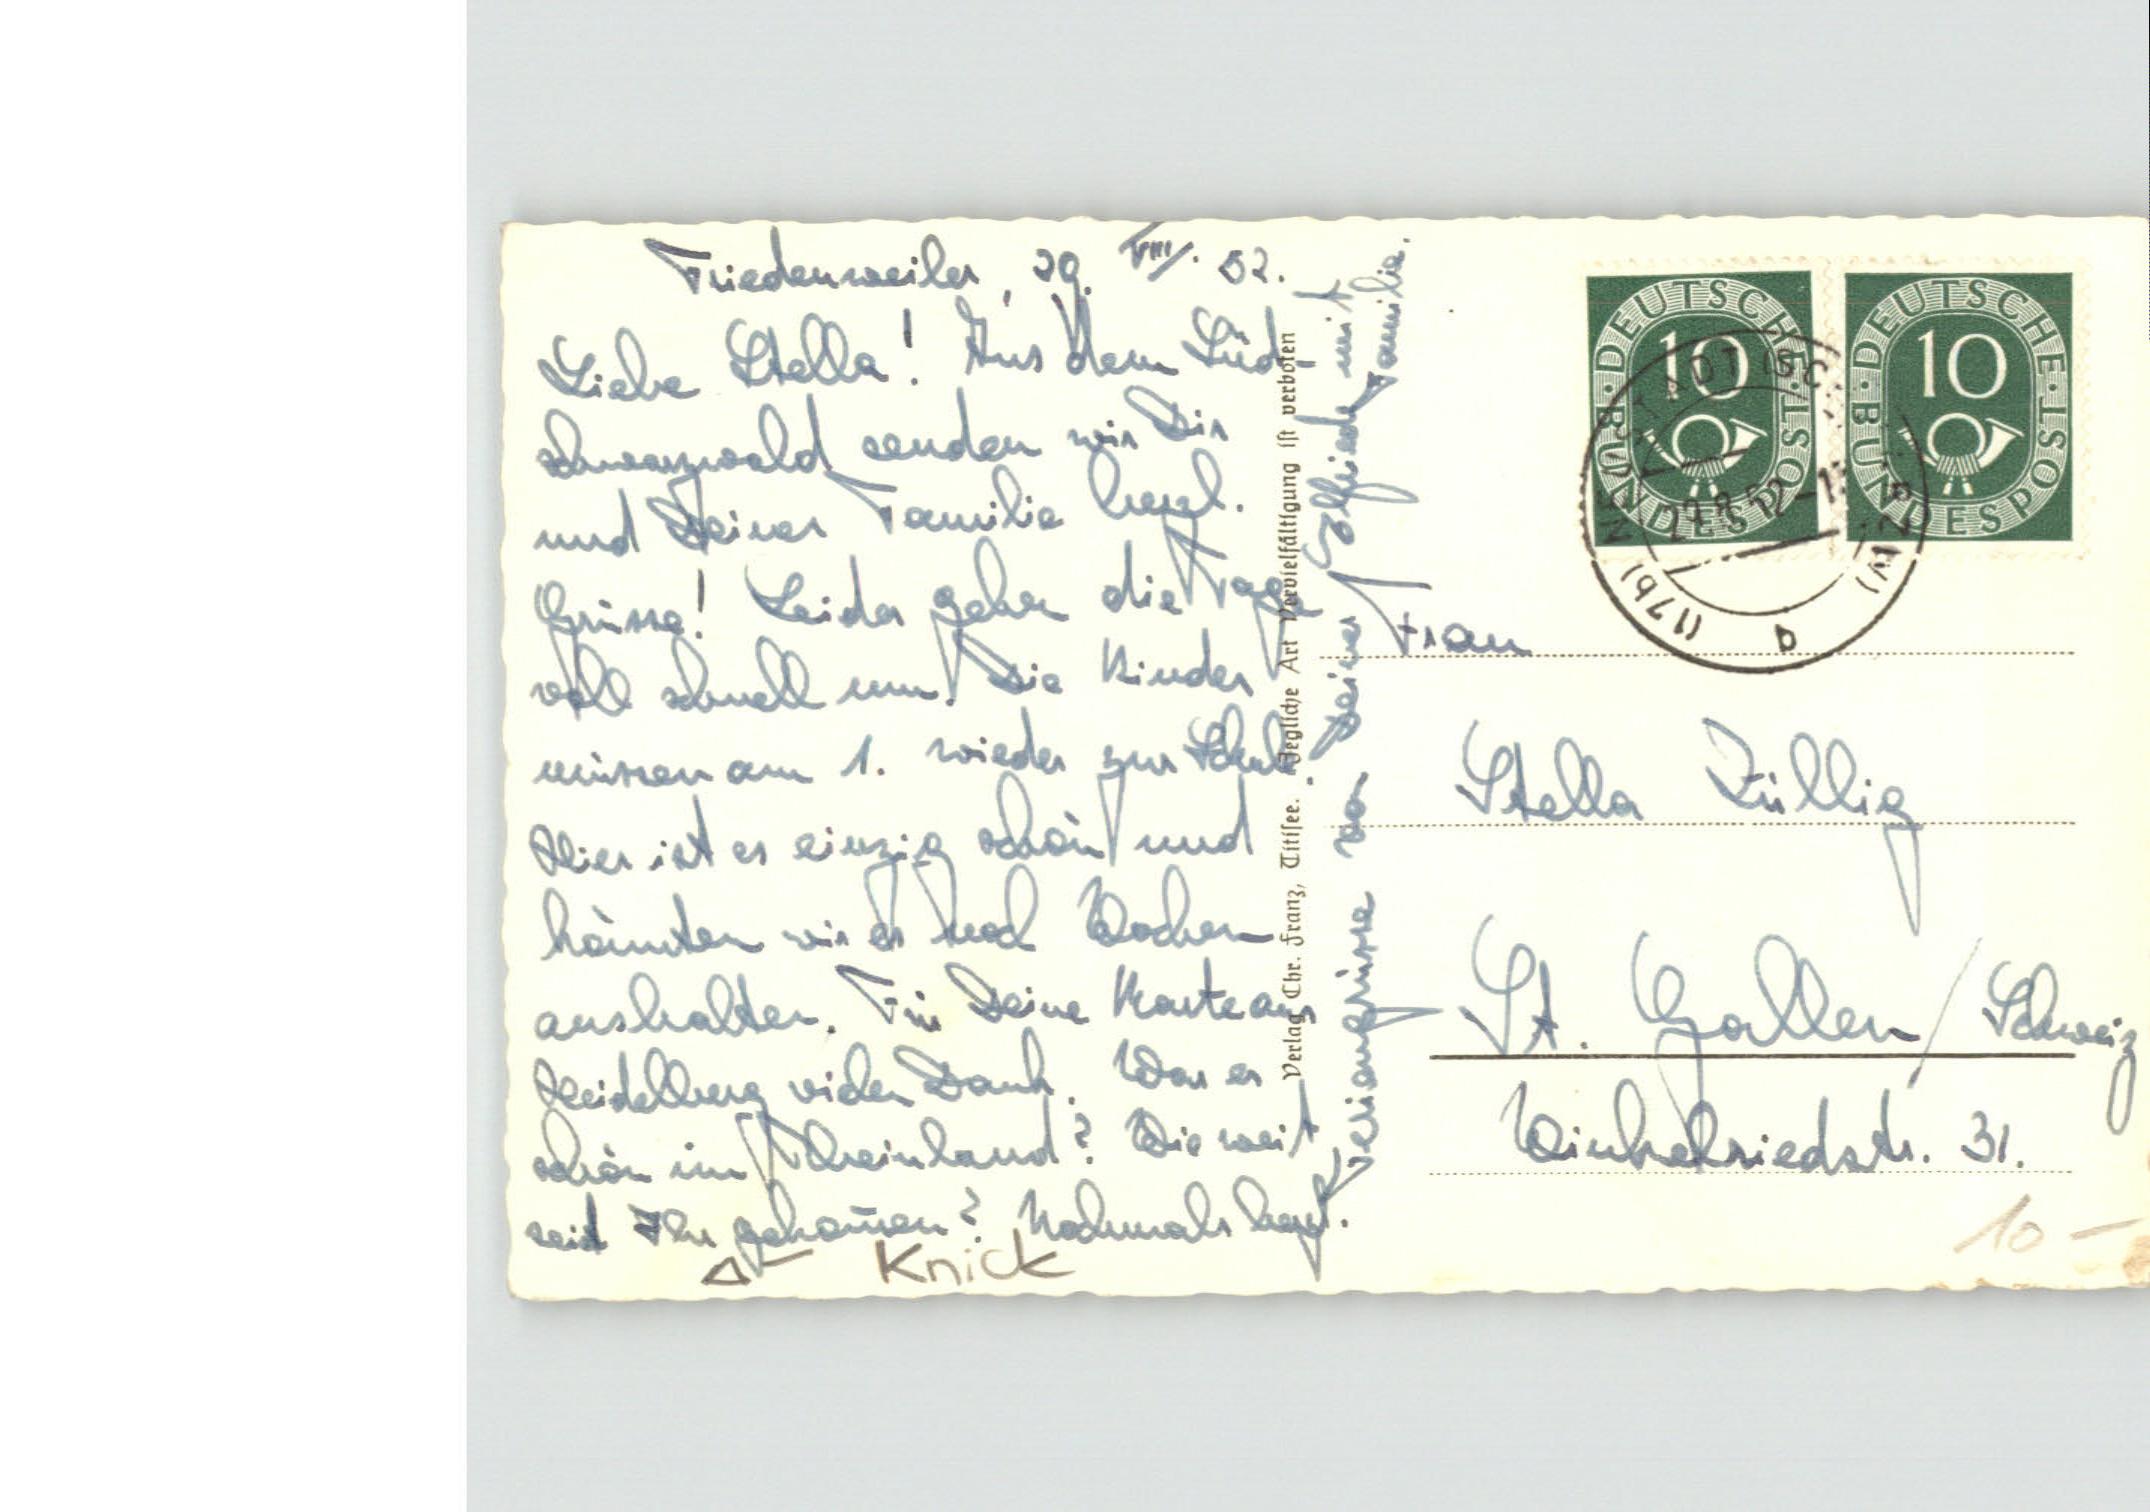 Friedenweiler, 29. VIII. 52.
Liebe Stella! Aus dem Süd-
schwarzwald senden wir Dir
und Deiner Familie herzl.
Grüsse! Leider gehen die Tage
voll schnell um. Die Kinder
müssen am 1. wieder zur Schule.
Hier ist es einzig schön und
könnten wir es noch Wochen
aushalten. Für Deine Karte aus
Heidelberg vielen Dank. War es
schön im Rheinland? Wie weit
seid Ihr gekom̄en? Nochmals herzl.
Feriengrüsse von Deiner Elfriede mit
Familie.
Knick
Verlag Chr. Franz, Titisee. Jegliche Art Vervielfältigung ist verboten
DEUTSCHE BUNDESPOST
10
DEUTSCHE BUNDESPOST
10
(17b) NEUSTADT
29.8.52
a
Frau
Stella Züllig
St. Gallen / Schweiz
Winkelriedstr. 31.
10 –